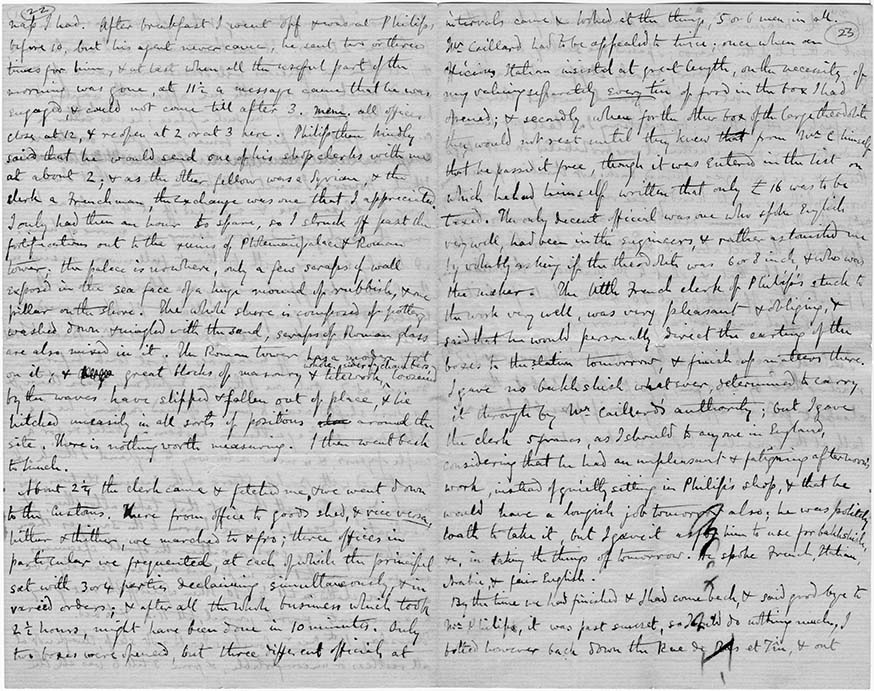 22
nap I had. After breakfast I went off & was at Philips,
before 10, but his agent never came, he sent two or three
times for him, & at last when all the useful part of the
morning was gone, at 11½ a message came that he was
engaged & could not come till after 3. all offices
close at 12, & reopen at 2 or at 3 here. Philip then kindly
said that he would send one of his shop clerks with me
at about 2; & as the other fellow was a Syrian, & the
clerk a Frenchman, the exchange was one that I appreciated
I only had then an hour to spare, so I struck off past the
fortifications out to the ruins of Ptolemaic palace & Roman
tower; the palace is nowhere, only a few scraps of wall
exposed in the sea face of a huge mound of rubbish, & one
pillar on the shore. The whole shore is composed of pottery
washed down & mingled with the sand, scraps of Roman glass
are also mixed in it. The Roman tower has a modern fort
on it, & great blocks of masonry & whole vaulted chambers, loosened
by the waves have slipped & fallen out of place, & lie
hitched uneasily in all sorts of positions around the
site. There is nothing worth measuring. I then went back
to lunch.
About 2¼ the clerk came & fetched me, & we went down
to the Customs. There from office to goods shed, & vice versa,
hither & thither, we marched to & fro; three offices in
particular we frequented, at each of which the principal
sat with 3 or 4 parties declaiming simultaneously & in
varied orders; & after all the whole business which took
2½ hours, might have been done in 10 minutes. Only
two boxes were opened but three different officials at
23
intervals came & looked at the things, 5 or 6 men in all.
Mr. Caillard had to be appealed to twice; once when an
officious Italian insisted at great length, on the necessity of
my valuing separately every tin of food in the box I had
opened; & secondly when for the other box of the large theodolite
they would not rest until they knew that from Mr. C himself
that he passed it free, though it was entered in the list on
which he had himself written that only £16 was to be
taxed. The only decent official was one who spoke English
very well, had been in the engineers, & rather astonished me
by volubly asking if the theodolite was 6 or 8 inch & who was
the maker. The little French clerk of Philip's stuck to
the work very well, was very pleasant & obliging, &
said that he would personally direct the carting of the
boxes to the station tomorrow, & finish up matters there.
I gave no bakhshish whatever, determined to carry
it through by Mr. Caillard's authority; but I gave
the clerk 5 francs, as I should to anyone in England,
considering that he had an unpleasant & fatiguing afternoon's
work, instead of quietly sitting in Philip's shop, & that he
would have a longish job tomorrow also; he was politely
loath to take it, but I gave it as for him to use for bakhshish,
&c, in taking the things off tomorrow. He spoke French, Italian,
Arabic & fair English.
By the time we had finished & I had come back, & said good bye to
Mr. Philip, it was past sunset, so I could do nothing much, I
bolted however back down the Rue de Ras et Tin, & out